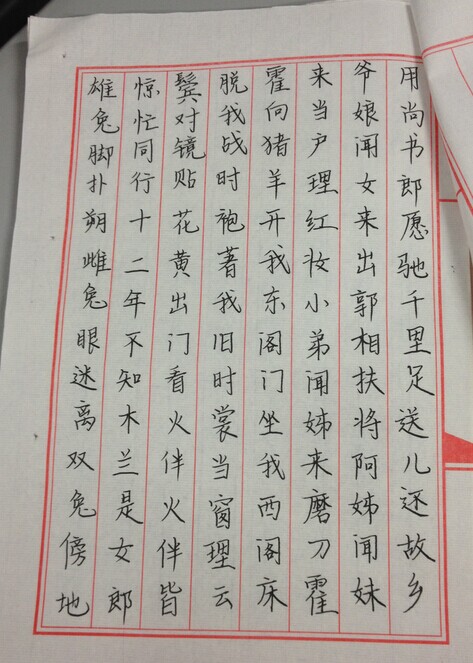 用尚书郎愿驰千里足送儿还故乡
爷娘闻女来出郭相扶将阿姊闻妹
来当户理红妆小弟闻姊来磨刀霍
霍向猪羊开我东阁门坐我西阁床
脱我战时袍著我旧时裳当窗理云
鬓对镜贴花黄出门看火伴火伴皆
惊忙同行十二年不知木兰是女郎
雄兔脚扑朔雌兔眼迷离双兔傍地